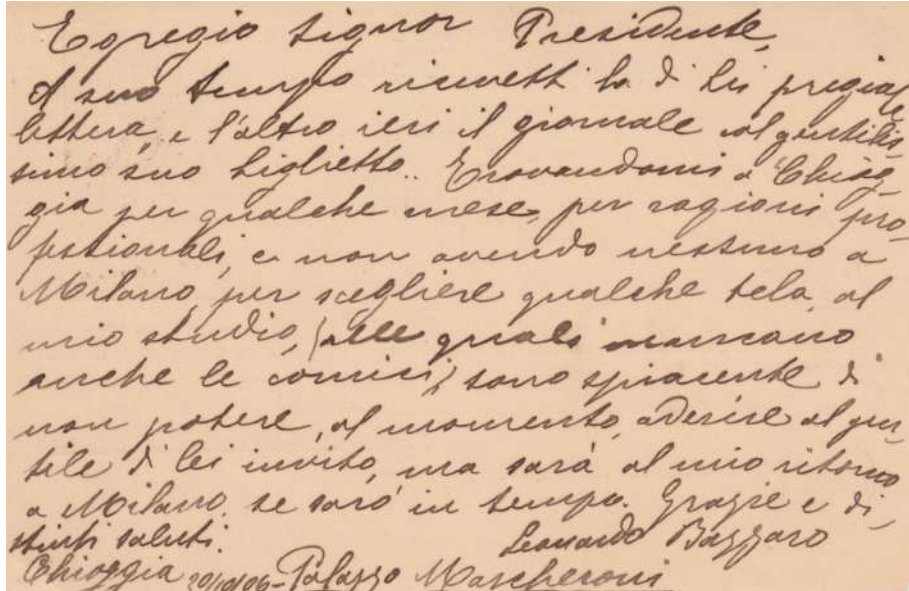 Egregio Signor Presidente,
A suo tempo ricevetti la di Lei pregiata
lettera, e l'altro ieri il giornale col gentilis-
simo suo biglietto.. Trovandomi a Chiog-
gia per qualche mese, per ragioni pro-
fessionali, e non avendo nessuno a
Milano, per scegliere qualche tela, al
mio studio, (alle quali mancano
anche le cornici) sono spiacente di
non potere, al momento, aderire al gen-
tile di lei invito, ma sarà al mio ritorno
a Milano, se sarò in tempo. Grazie e di-
stinti saluti.
Leonardo Bazzaro
Chioggia Palazzo Mascheroni